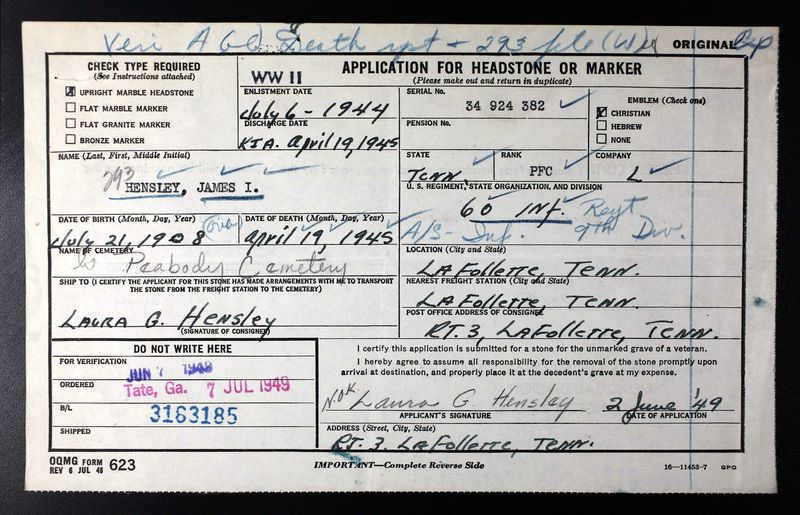 Veri AGO Death rpt - 293 file (WW
ORIGINAL
CHECK TYPE REQUIRED
(See Instructions attached)
UPRIGHT MARBLE HEADSTONE
FLAT MARBLE MARKER
FLAT GRANITE MARKER
BRONZE MARKER
WW II
ENLISTMENT DATE
July 6 - 1944
DISCHARGE DATE
KIA. April 19, 1945
APPLICATION FOR HEADSTONE OR MARKER
(Please make out and return in duplicate)
SERIAL No.
34 924 382
PENSION No.
EMBLEM (Check one)
CHRISTIAN
HEBREW
NONE
NAME (Last, First, Middle Initial)
293
HENSLEY, JAMES I.
STATE
TENN.
RANK
PFC
COMPANY
L
U. S. REGIMENT, STATE ORGANIZATION, AND DIVISION
60 INF. Regt
A/S- Inf. 9th Div.
DATE OF BIRTH (Month, Day, Year)
(over)
July 21, 1908
DATE OF DEATH (Month, Day, Year)
April 19, 1945
NAME OF CEMETERY
Peabody Cemetery
LOCATION (City and State)
LaFollette, TENN.
SHIP TO (I CERTIFY THE APPLICANT FOR THIS STONE HAS MADE ARRANGEMENTS WITH ME TO TRANSPORT
THE STONE FROM THE FREIGHT STATION TO THE CEMETERY)
NEAREST FREIGHT STATION (City and State)
LaFollette, TENN.
LAURA G. Hensley
(SIGNATURE OF CONSIGNEE)
POST OFFICE ADDRESS OF CONSIGNEE
RT. 3, LaFollette, TENN.
DO NOT WRITE HERE
FOR VERIFICATION
JUN 7 1949
ORDERED
Tate, Ga. 7 JUL 1949
B/L
3163185
SHIPPED
I certify this application is submitted for a stone for the unmarked grave of a veteran.
I hereby agree to assume all responsibility for the removal of the stone promptly upon
arrival at destination, and properly place it at the decedent's grave at my expense.
N.O.K Laura G. Hensley 2 June '49
APPLICANT'S SIGNATURE
DATE OF APPLICATION
ADDRESS (Street, City, State)
RT. 3. LaFollette, TENN.
OQMG FORM
REV 6 JUL 48 623
IMPORTANT—Complete Reverse Side
16—11453-7 GPO